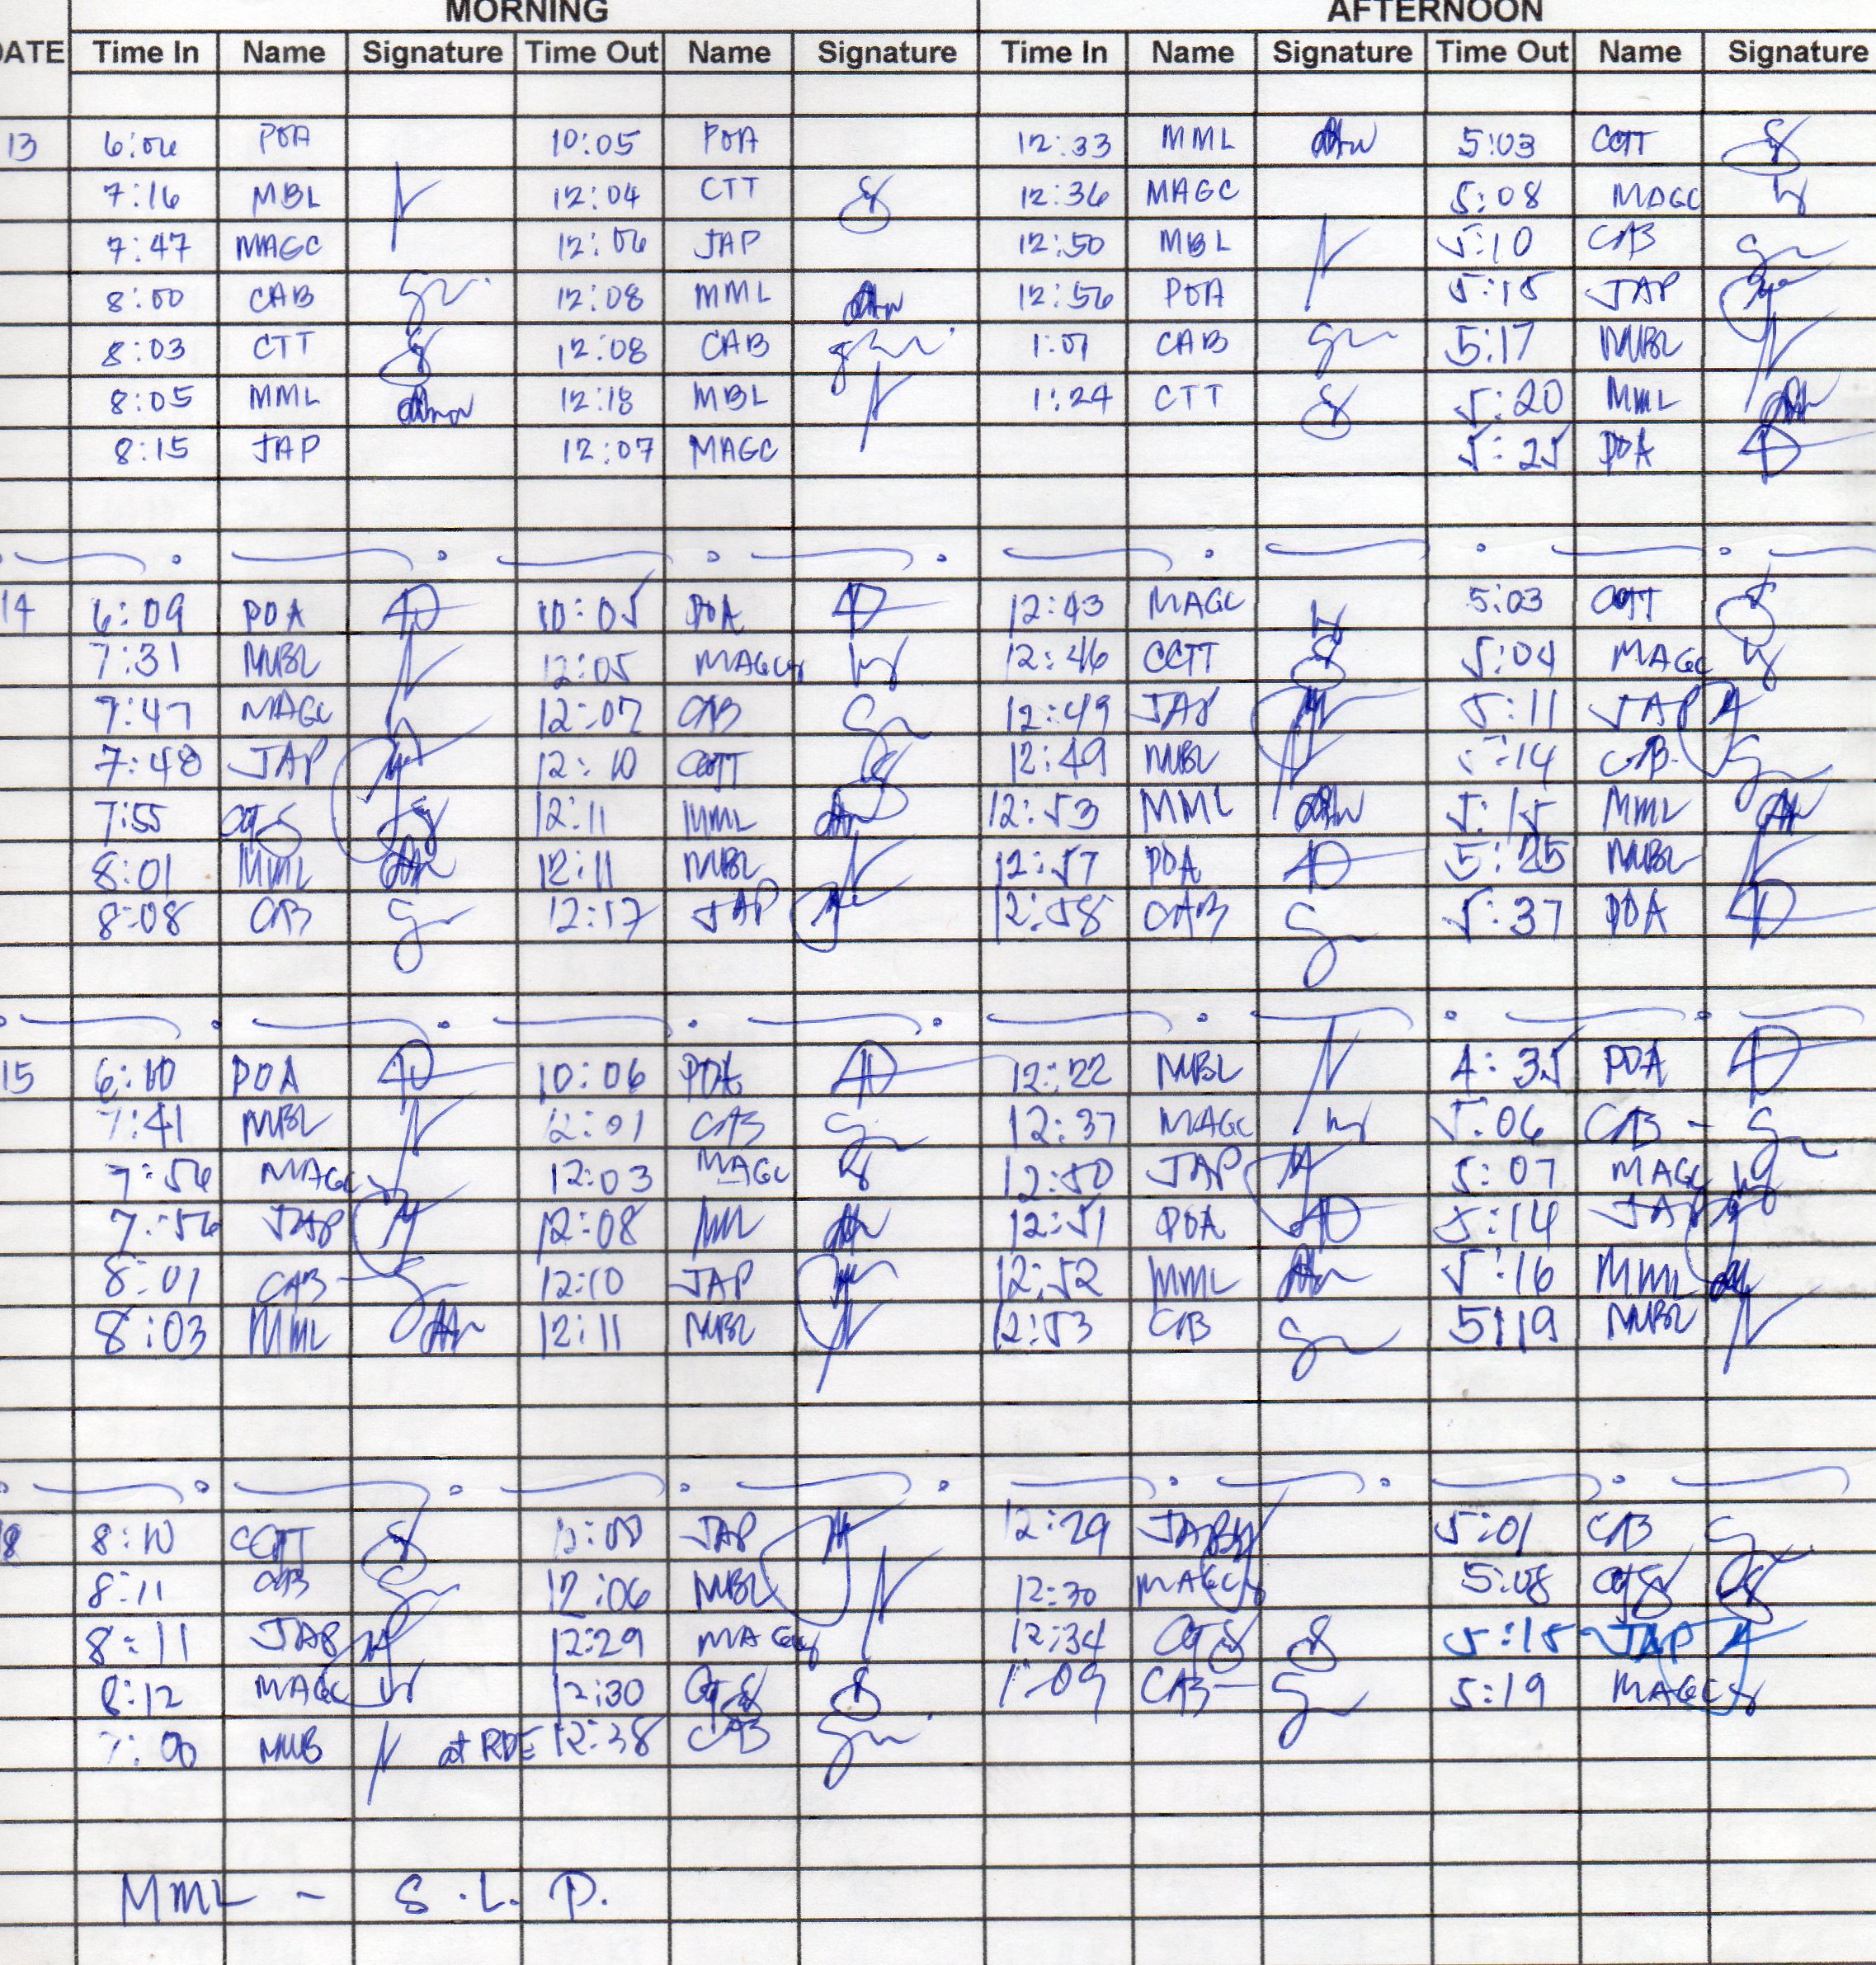 MORNING AFTERNOON
DATE Time In Name Signature Time Out Name Signature Time In Name Signature Time Out Name Signature
13 6:06 POA 10:05 POA 12:33 MML 5:03 CCTT
7:16 MBL 12:04 CTT 12:36 MAGC 5:08 MAGC
7:47 MAGC 12:06 JAP 12:50 MBL 5:10 CAB
8:00 CAB 12:08 MML 12:56 POA 5:15 JAP
8:03 CTT 12:08 CAB 1:07 CAB 5:17 MBL
8:05 MML 12:18 MBL 1:24 CTT 5:20 MML
8:15 JAP 12:07 MAGC 5:25 POA
14 6:09 POA 10:05 POA 12:43 MAGC 5:03 CCTT
7:31 MBL 12:05 MAGC 12:46 CCTT 5:04 MAGC
7:47 MAGC 12:07 CAB 12:49 JAP 5:11 JAP
7:48 JAP 12:10 CCTT 12:49 MBL 5:14 CAB
7:55 12:11 MML 12:53 MML 5:15 MML
8:01 MML 12:11 MBL 12:57 POA 5:25 MBL
8:08 CAB 12:17 JAP 12:58 CAB 5:37 POA
15 6:10 POA 10:06 POA 12:22 MBL 4:35 POA
7:41 MBL 12:01 CAB 12:37 MAGC 5:06 CAB
7:56 MAGC 12:03 MAGC 12:50 JAP 5:07 MAGC
7:56 JAP 12:08 MML 12:51 POA 5:14 JAP
8:01 CAB 12:10 JAP 12:52 MML 5:16 MML
8:03 MML 12:11 MBL 12:53 CAB 5:19 MBL
18 8:10 CCTT JAP 12:29 JAP 5:01 CAB
8:11 CAB 12:06 MBL 12:30 MAGC 5:08
8:11 JAP 12:29 MAGC 12:34 5:15 JAP
8:12 MAGC 12:30 1:09 CAB 5:19 MAGC
at RDE 12:38 CAB
MML - S.L.P.